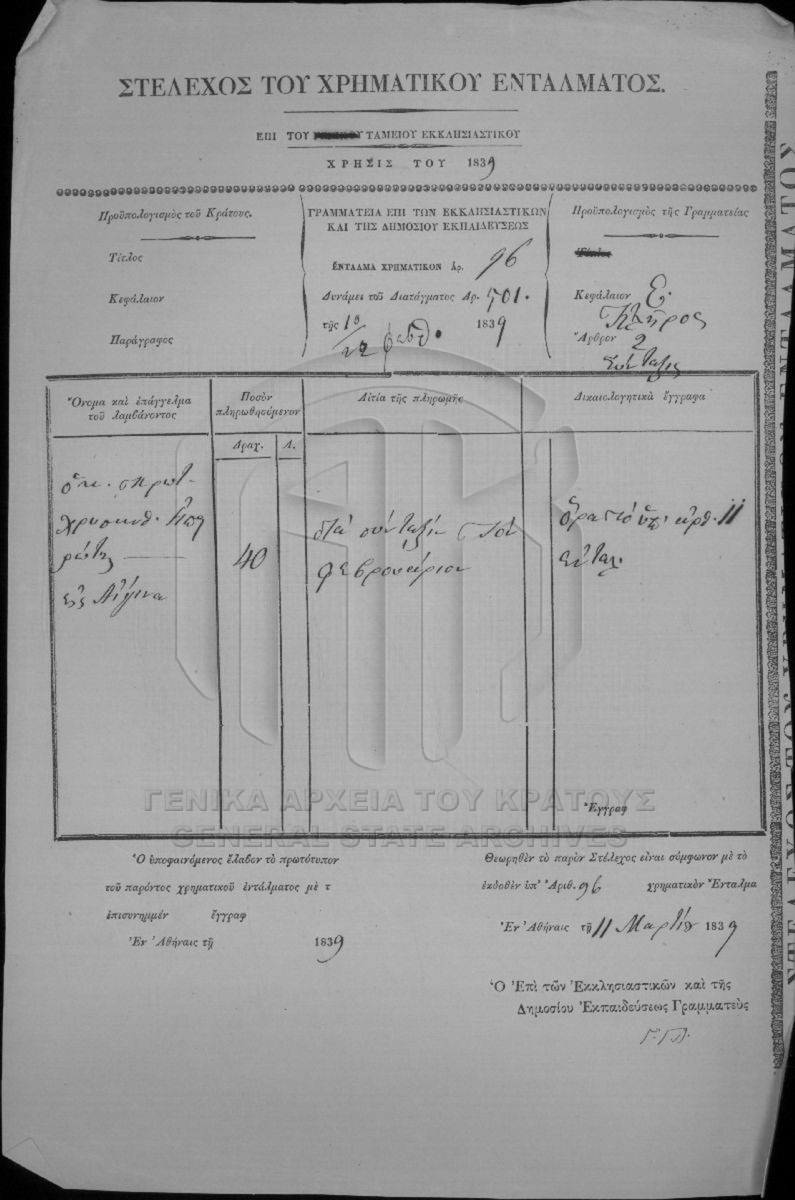 ΣΤΕΛΕΧΟΣ ΤΟΥ ΧΡΗΜΑΤΙΚΟΥ ΕΝΤΑΛΜΑΤΟΣ.
ΕΠΙ ΤΟΥ ΤΑΜΕΙΟΥ ΕΚΚΛΗΣΙΑΣΤΙΚΟΥ
ΧΡΗΣΙΣ ΤΟΥ 1839
Προϋπολογισμὸς τοῦ Κράτους.
Τίτλος
Κεφάλαιον
Παράγραφος
ΓΡΑΜΜΑΤΕΙΑ ΕΠΙ ΤΩΝ ΕΚΚΛΗΣΙΑΣΤΙΚΩΝ
ΚΑΙ ΤΗΣ ΔΗΜΟΣΙΟΥ ΕΚΠΑΙΔΕΥΣΕΩΣ
ΕΝΤΑΛΜΑ ΧΡΗΜΑΤΙΚΟΝ Ἀρ. 96
Δυνάμει τοῦ Διατάγματος Αρ. 501.
τῆς 10/22 φεβρ. 1839
Προϋπολογισμὸς τῆς Γραμματείας
Τίτλος
Κεφάλαιον Ε.
Κλῆρος
Ἄρθρον 2
Σύνταξις
Ὄνομα καὶ ἐπάγγελμα
τοῦ λαμβάνοντος
Ποσὸν
πληρωθησόμενον
Δραχ. Λ.
Αἰτία τῆς πληρωμῆς
Δικαιολογητικὰ ἔγγραφα
40
διὰ σύνταξιν τὸν
φεβρουάριον
11
ἐνταλ.
εἰς Αἴγινα
Ἔγγραφ
ΓΕΝΙΚΑ ΑΡΧΕΙΑ ΤΟΥ ΚΡΑΤΟΥΣ
GENERAL STATE ARCHIVES
Ὁ ὑποφαινόμενος ἔλαβον τὸ πρωτότυπον
τοῦ παρόντος χρηματικοῦ ἐντάλματος μὲ τ
ἐπισυνημμέν ἔγγραφ
Ἐν Ἀθήναις τῇ 1839
Θεωρηθὲν τὸ παρὸν Στέλεχος εἶναι σύμφωνον μὲ τὸ
ἐκδοθὲν ὑπ' Ἀριθ. 96 χρηματικὸν Ἔνταλμα
Ἐν Ἀθήναις τῇ 11 Μαρτίου 1839
Ὁ Ἐπὶ τῶν Ἐκκλησιαστικῶν καὶ τῆς
Δημοσίου Ἐκπαιδεύσεως Γραμματεὺς